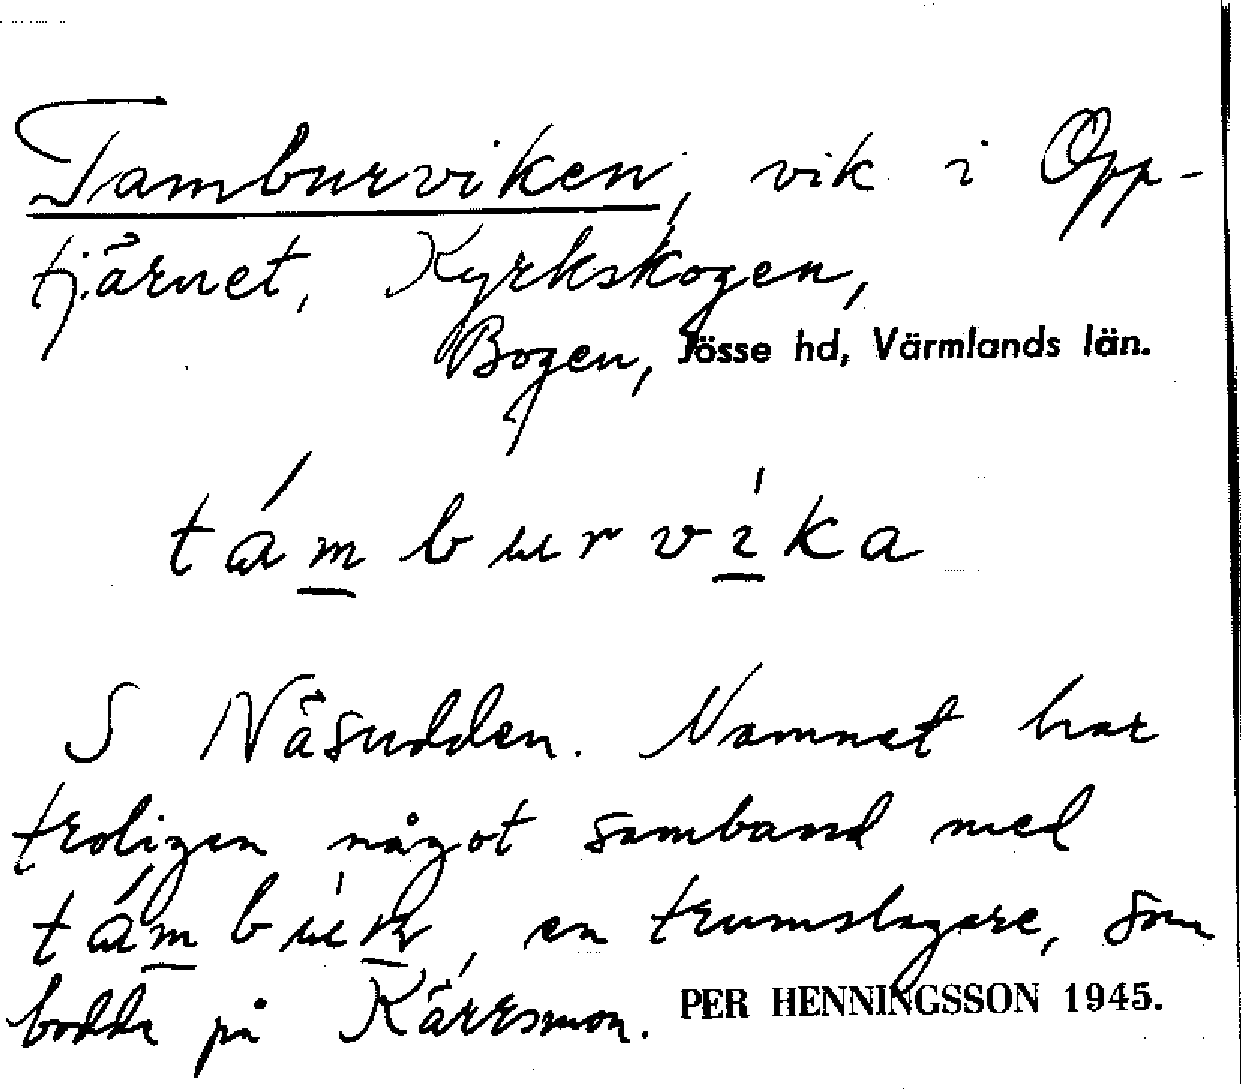 Tamburviken, vik i Opp-
tjärnet, Kyrkskogen,
Bogen, Jösse hd, Värmlands län.
támburvíka
S Näsudden. Namnet har
troligen något samband med
támbúr, en trumslagare, som
bodde på Kärrsmon. PER HENNINGSSON 1945.